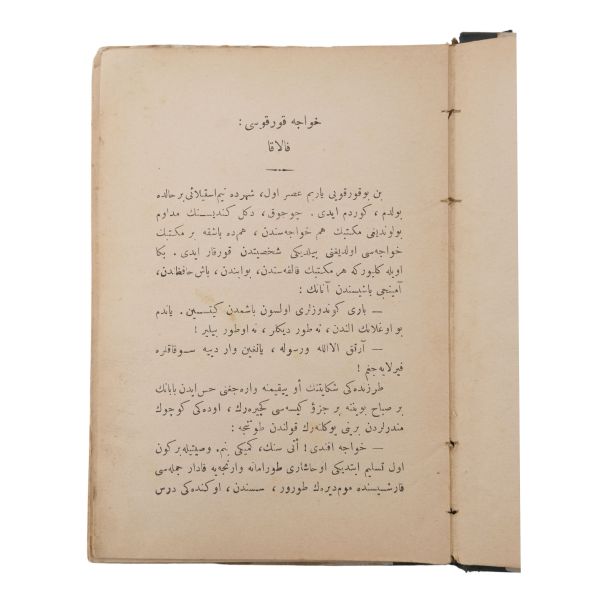 خواجه قورقوسی :
فالاقا
بن بوقورقویی یاریم عصر اول، شهرده نیم استیلائی بر حالده
بولدم ، کوردم ایدی . چوجوق ، دکل کندیسنك مداوم
بولوندیغی مکتبك هم خواجه‌سندن ، هم‌ده باشقه بر مکتبك
خواجه‌سی اولدیغنی بیلدیکی شخصیتدن قورقار ایدی . بکا
اویله کلیورکه هر مکتبك قالفه‌سندن، بوابندن ، باش حافظندن،
آمینجی باشیسندن آنانك :
— باری کوندوزلری اولسون باشمدن کیتسین . یاندم
بو اوغلانك الندن ، نه طور دیکلر ، نه اوطور بیلیر !
— آرتق الالله ورسوله ، یانغین وار دییه سوقاقلره
فیرلایه‌جغم !
طرزنده‌کی شکایتنك أو ییقیمنه واره‌جغنی حس ایدن بابانك
بر صباح بویننه بر جزؤ کیسه‌سی کچیره‌رك ، اوده‌کی کوچوك
مندرلردن برینی یوکله‌رك قولندن طوتنجه :
— خواجه افندی ! أتی سنك، کمیکی بنم، وصیتیله برکون
اول تسلیم ایتدیکی اوحاشاری طورامانه وارنجه‌یه قادار جمله‌سی
قارشیسنده موم دیره‌ك طورور ، سسندن ، اوکنده‌کی درس